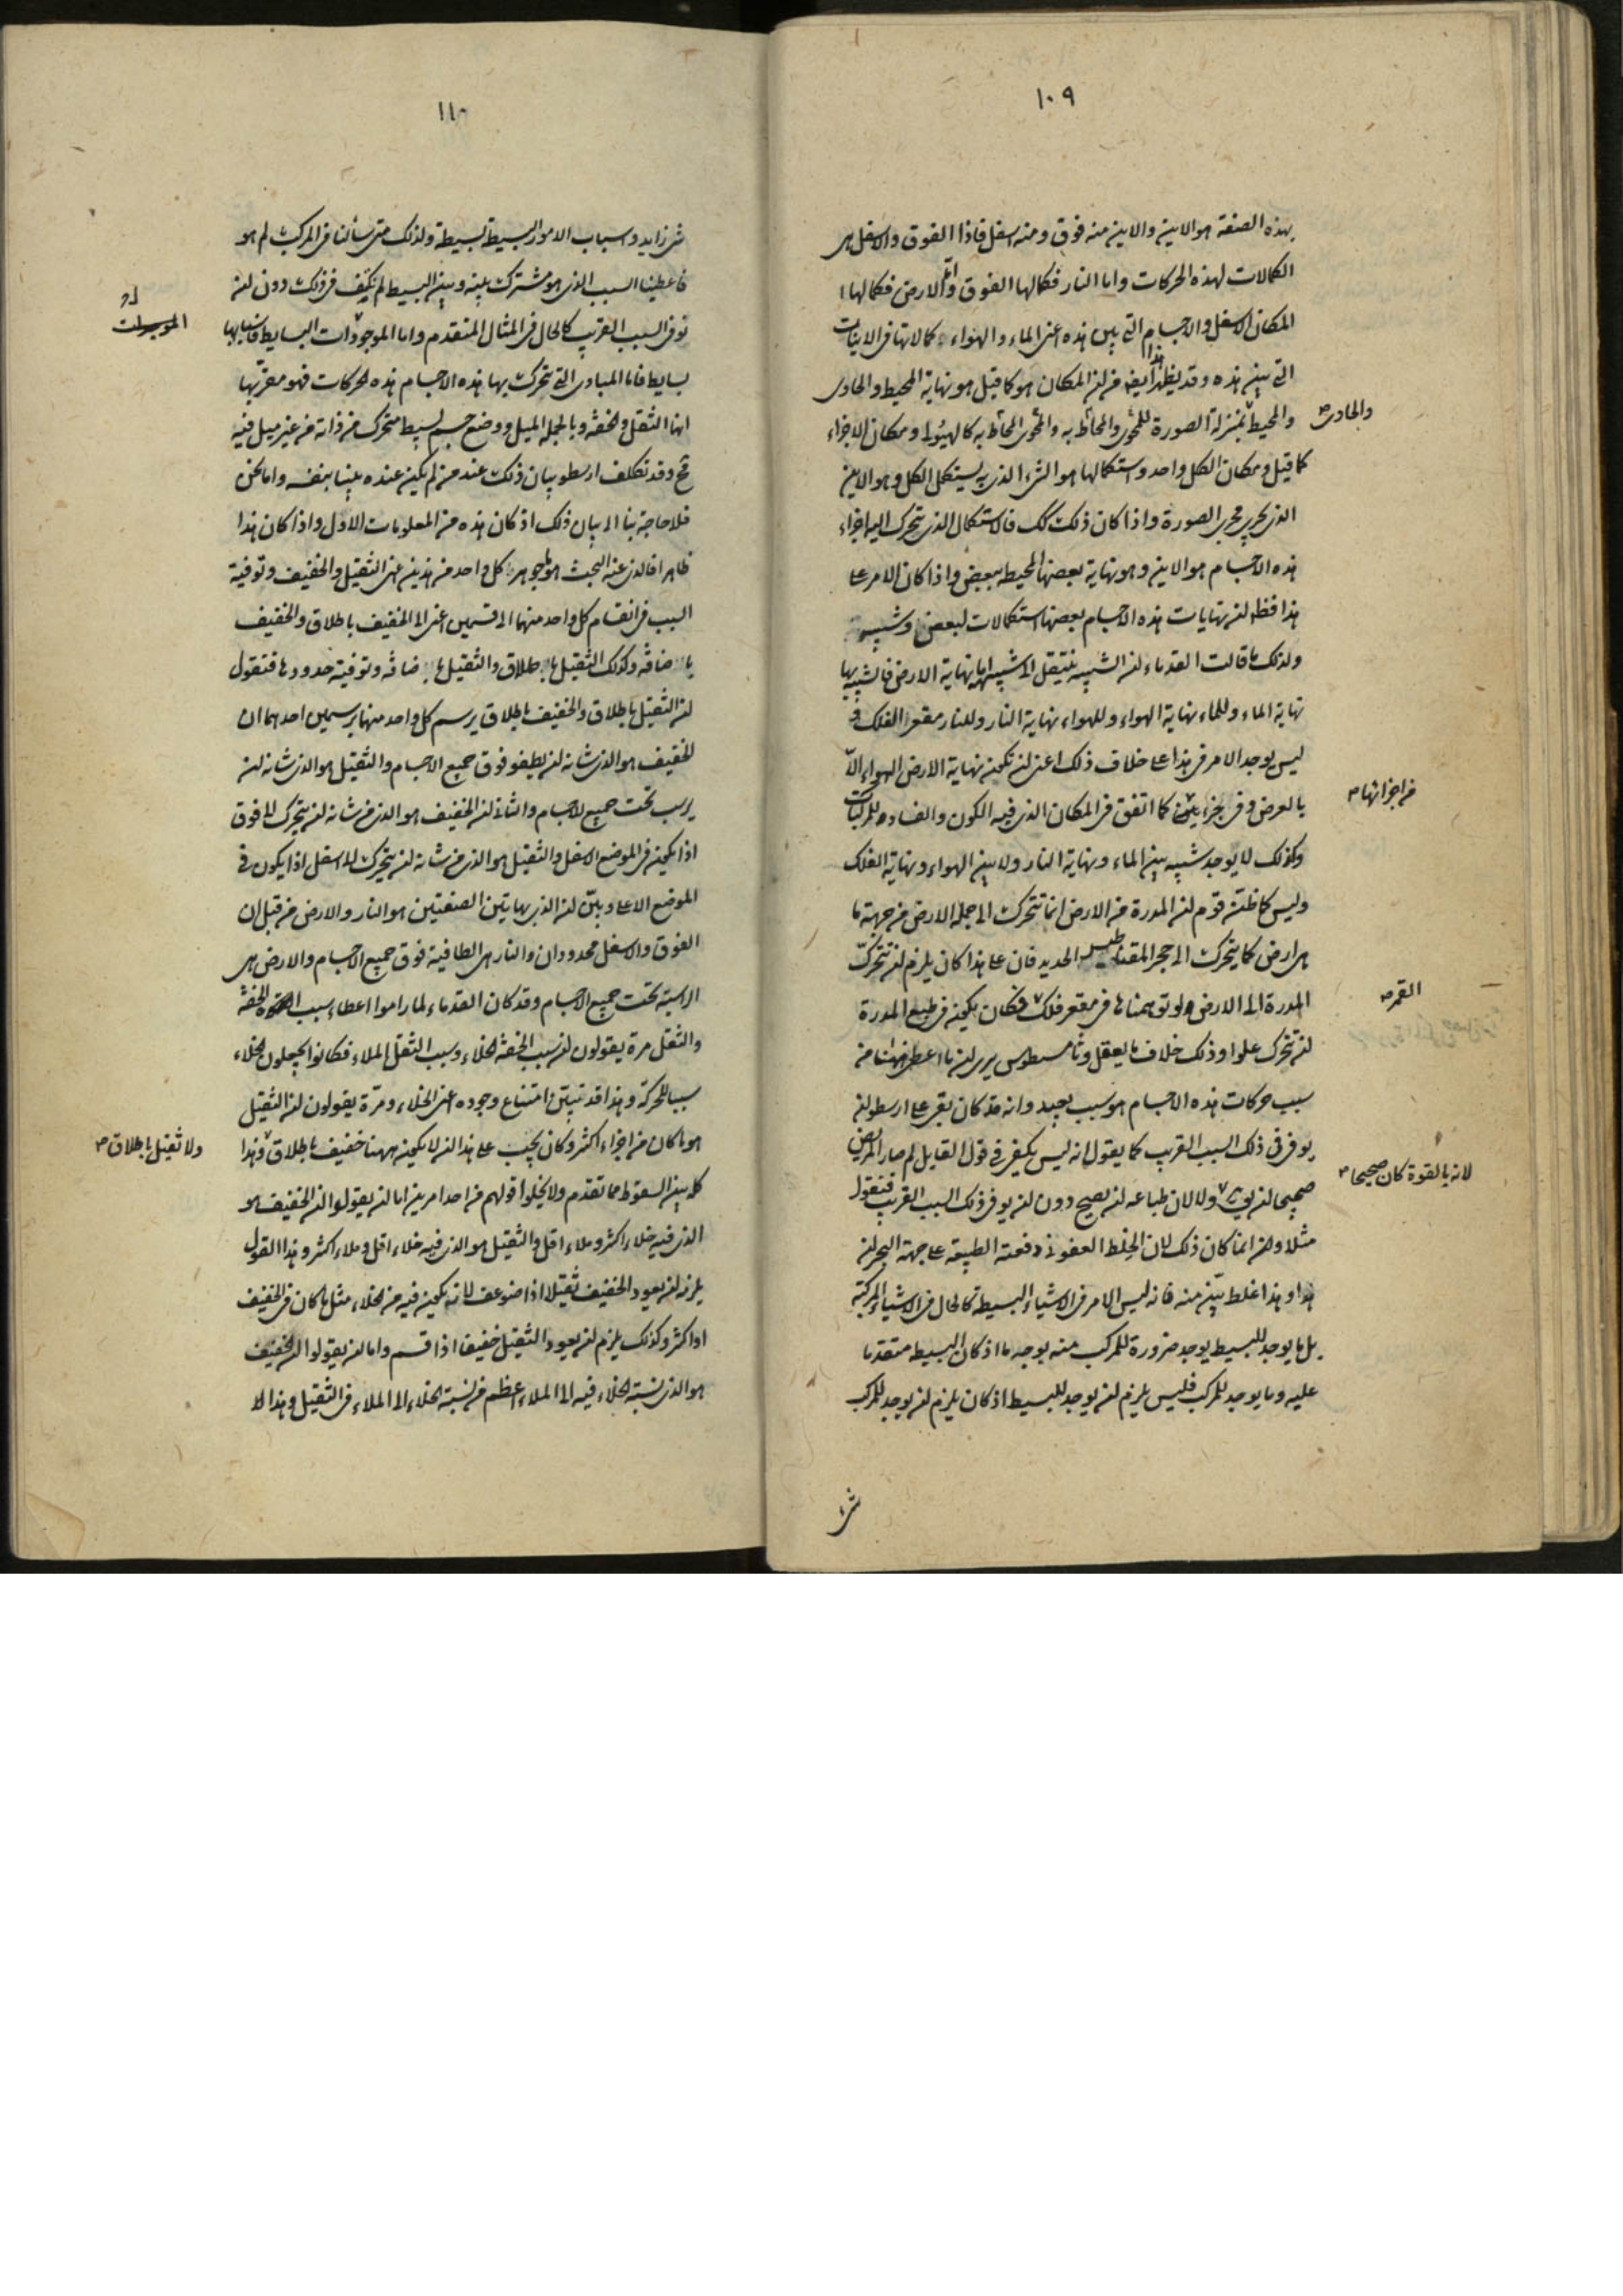 ١٠٩
بهذه الصفة هو الاين والاين منه فوق ومنه اسفل فاذا الفوق والاسفل هى
الكمالات لهذه الحركات واما النار فكمالها الفوق واما الارض فكمالها
المكان الاسفل والاجسام التى بين هذه اعنى الماء والهواء كمالاتها فى الاينات
التى بين هذه وقد يظهر هذا ايضا من ان المكان هو كما قيل هو نهاية المحيط والحاوى
والمحيط بمنزلة الصورة للمحوى والمحاط به والمحوى المحاط به كالهيولى ومكان الاجزاء
والحاوى
كما قيل ومكان الكل واحد واستكمالها هو الشىء الذى به يستكمل الكل وهو الاين
الذى يجرى مجرى الصورة واذا كان ذلك كك فالاستكمال الذى يتحرك اليه اجزاء
هذه الاجسام هو الاين وهو نهاية بعضها المحيطه ببعض واذا كان الامر على
هذا فظ ان نهايات هذه الاجسام بعضها استكمالات لبعض وشبيه
ولذلك ما قالت القدماء ان الشبيه ينتقل الى شبيهه اما نهاية الارض فالشبيه بها
نهاية الماء وللماء نهاية الهواء وللهواء نهاية النار وللنار مقعر الفلك و
ليس يوجد الامر فى هذا على خلاف ذلك اعنى ان تكون نهاية الارض الهواء الا
بالعرض وفى جزء كما اتفق فى المكان الذى فيه الكون والفساد للمركبات
من اجزائها
وكذلك لا يوجد شبيه بين الماء ونهاية النار ولا بين الهواء ونهاية الفلك
وليس كما ظنه قوم ان المدرة من الارض انما تتحرك الى جملة الارض من جهة ما
هى ارض كما يتحرك الى حجر المقناطيس الحديد فان على هذا كان يلزم ان تتحرك
المدرة الى الارض ولو توهمناها فى مقعر فلك فكان يكون فى طبع المدرة
القمر
ان تتحرك علوا وذلك خلاف ما يعقل وثامسطيوس يرى ان ما اعطى ههنا من
سبب حركات هذه الاجسام هو سبب بعيد وانه قد كان بقى على ارسطو ان
يوفى فى ذلك السبب القريب كما يقول انه ليس يكفى فى قول القايل لم صار المريض
صحيحا ان يوفى ولا لان طباعه ان يصح دون ان يوفى ذلك السبب القريب فنقول
لانه بالقوة كان صحيحا
مثلا وان انما كان ذلك لان الخلط العفونى دفعته الطبيعة على جهة البحران
هذا وهذا غلط بين منه فانه ليس الامر فى الاشياء البسيطة كالحال فى الاشياء المركبة
بل ما يوجد للبسيط يوجد ضرورة للمركب منه بوجه ما اذ كان البسيط متقدما
عليه وما يوجد للمركب فليس يلزم ان يوجد للبسيط اذ كان يلزم ان يوجد للمركب
شىء
١١٠
شى زايد واسباب الامور البسيطة بسيطة ولذلك متى سألنا فى المركب لم هو
فاعطينا السبب الذى هو مشترك بينه وبين البسيط لم نكتف فى ذلك دون ان
نوفى السبب القريب كالحال فى المثال المتقدم واما الموجودات البسايط فاسبابها
بسايط فاما المبادى التى تتحرك بها هذه الاجسام هذه الحركات فهو معرّبها
انها الثقل والخفة وبالجملة الميل ووضع جسم بسيط متحرك من ذاته من غير ميل فيه
مح وقد تكلف ارسطو بيان ذلك عند من لم يكن عنده بينا بنفسه واما نحن
فلا حاجة بنا الى بيان ذلك اذ كان هذه من المعلومات الاول واذا كان هذا
ظاهرا فالذى عنه البحث هو ما جوهر كل واحد من هذين اعنى الثقيل والخفيف وتوفية
السبب فى انقسام كل واحد منهما الى قسمين اعنى الى الخفيف باطلاق والخفيف
بالاضافة وكذلك الثقيل باطلاق والثقيل بالاضافة وتوفية حدودها فنقول
ان الثقيل باطلاق والخفيف باطلاق يرسم كل واحد منهما برسمين احدهما ان
الخفيف هو الذى شانه ان يطفو فوق جميع الاجسام والثقيل هو الذى شانه ان
يرسب تحت جميع الاجسام والثانى ان الخفيف هو الذى من شانه ان يتحرك الى فوق
اذا يكون فى الموضع الاسفل والثقيل هو الذى من شانه ان يتحرك الى اسفل اذا يكون فى
الموضع الاعلى وبين ان الذى بهاتين الصفتين هو النار والارض من قبل ان
الفوق والاسفل محدودان والنار هى الطافية فوق جميع الاجسام والارض هى
الراسبة تحت جميع الاجسام وقد كان القدماء لما راموا اعطاء سبب الخفة
والثقل مرة يقولون ان سبب الخفة الخلاء وسبب الثقل الملاء فكانوا يجعلون الخلاء
سببا للحركة وهذا قد تبين امتناع وجوده اعنى الخلاء ومرة يقولون ان الثقيل
هو ما كان من اجزاء اكثر وكان يجب على هذا ان لا يكون ههنا خفيف باطلاق وهذا
ولا ثقيل باطلاق
كله بين السقوط مما تقدم ولا يخلوا قولهم من احد امرين اما ان يقولوا ان الخفيف هو
الذى فيه خلاء اكثر وملاء اقل والثقيل هو الذى فيه خلاء اقل وملاء اكثر وهذا القول
يلزمه ان يعود الخفيف ثقيلا اذا ضوعف لانه يكون فيه من الخلاء مثل ما كان فى الخفيف
او اكثر وكذلك يلزم ان يعود الثقيل خفيفا اذا قسم واما ان يقولوا ان الخفيف
هو الذى نسبة الخلاء فيه الى الملاء اعظم من نسبة الخلاء الى الملاء فى الثقيل وهذا الا